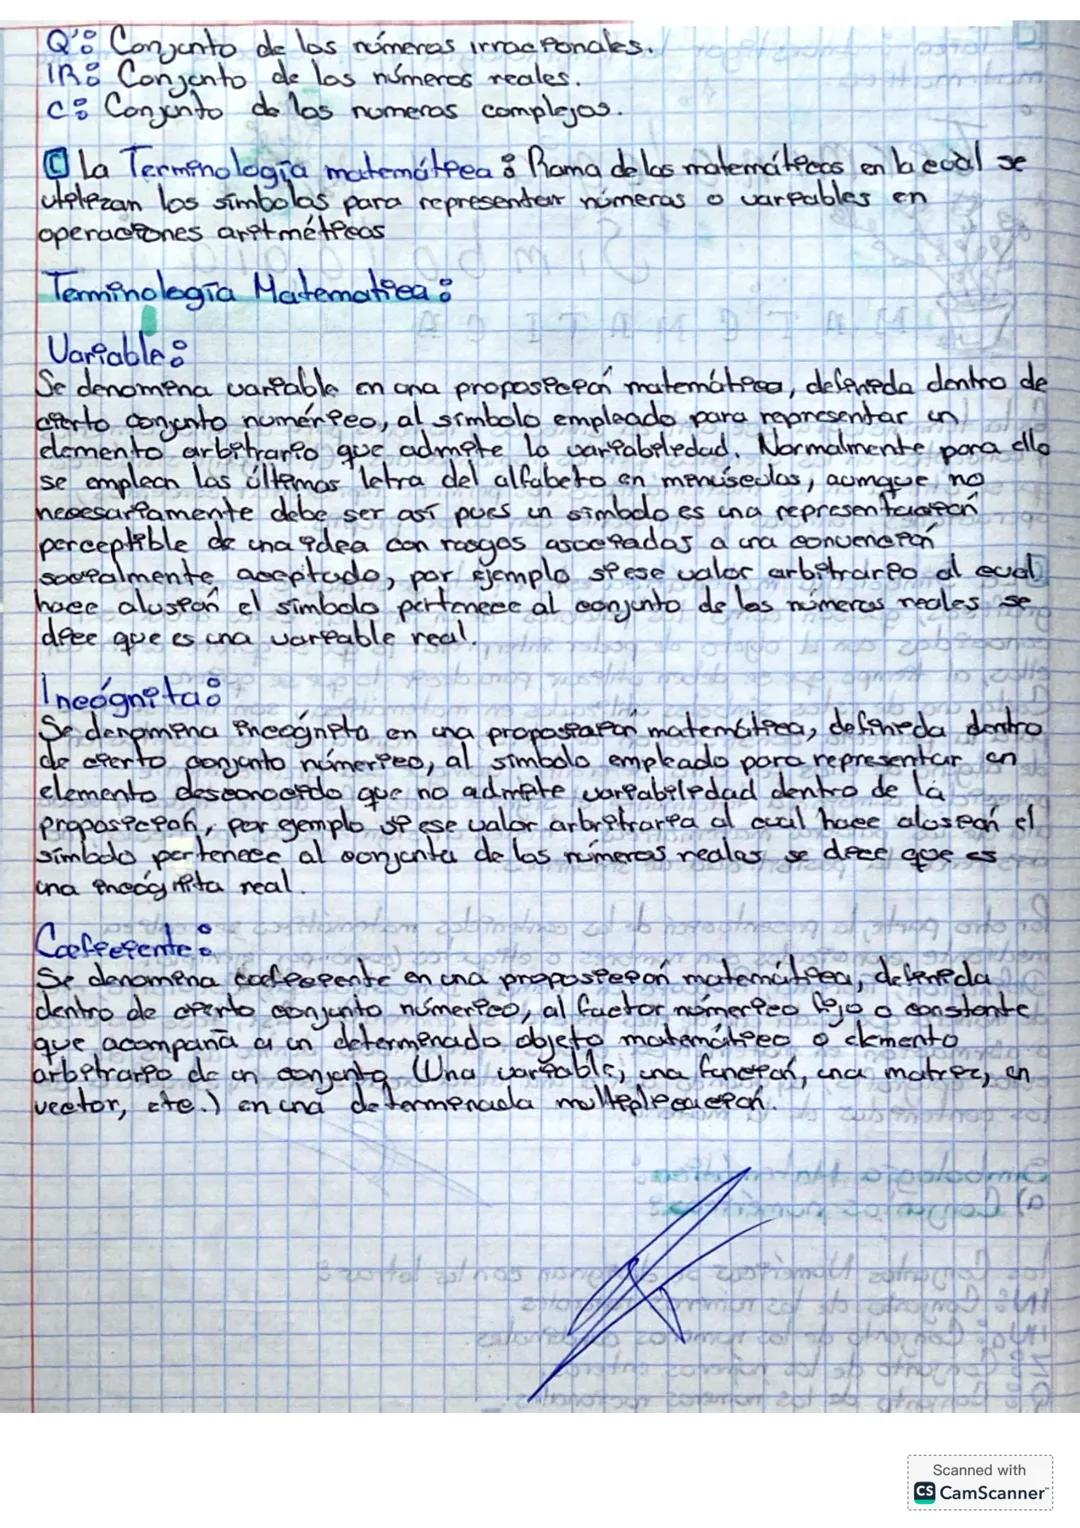 Q': Conjunto de los números irracionales.
IR: Conjunto de los números reales.
C: Conjunto de los numeros complejos.
C La Terminología matemática: Rama de las matemáticas en la cual se
utilizan los símbolos para representar números o variables en
operaciones aritméticas
Terminología Matematica:
Variable:
Se denomina variable en una proposición matemática, definida dentro de
cierto conjunto numérico, al símbolo empleado para representar un
elemento arbitrario que admite la variabilidad. Normalmente para ello
se emplean las últimas letra del alfabeto en minúsculas, aumque no
necesariamente debe ser así pues un símbolo es una representación
perceptible de una idea con rasgos asociados a una convención
socialmente aceptado, por ejemplo si ese valor arbitrario al cual
hace alusión el símbolo pertenece al conjunto de los números reales se
dice que es una variable real.
Incógnita:
Se denomina incógnita en una proposición matemática, definida dentro
de cierto conjunto númerico, al símbolo empleado para representar un
elemento desconocido que no admite variabilidad dentro de la
proposición, por ejemplo si ese valor arbitraria al cual hace alusión el
símbolo pertenece al conjunto de los números reales se dice que es
una incógnita real.
Coeficiente:
Se denomina coeficiente en una proposición matemática, definida
dentro de cierto conjunto númerico, al factor númerico fijo o constante
que acompaña a un determinado objeto matemático o elemento
arbitrario de un conjunto (Una variable, una función, una matriz, un
vector, etc.) en una determinada multiplicación.
Scanned with
CS CamScanner